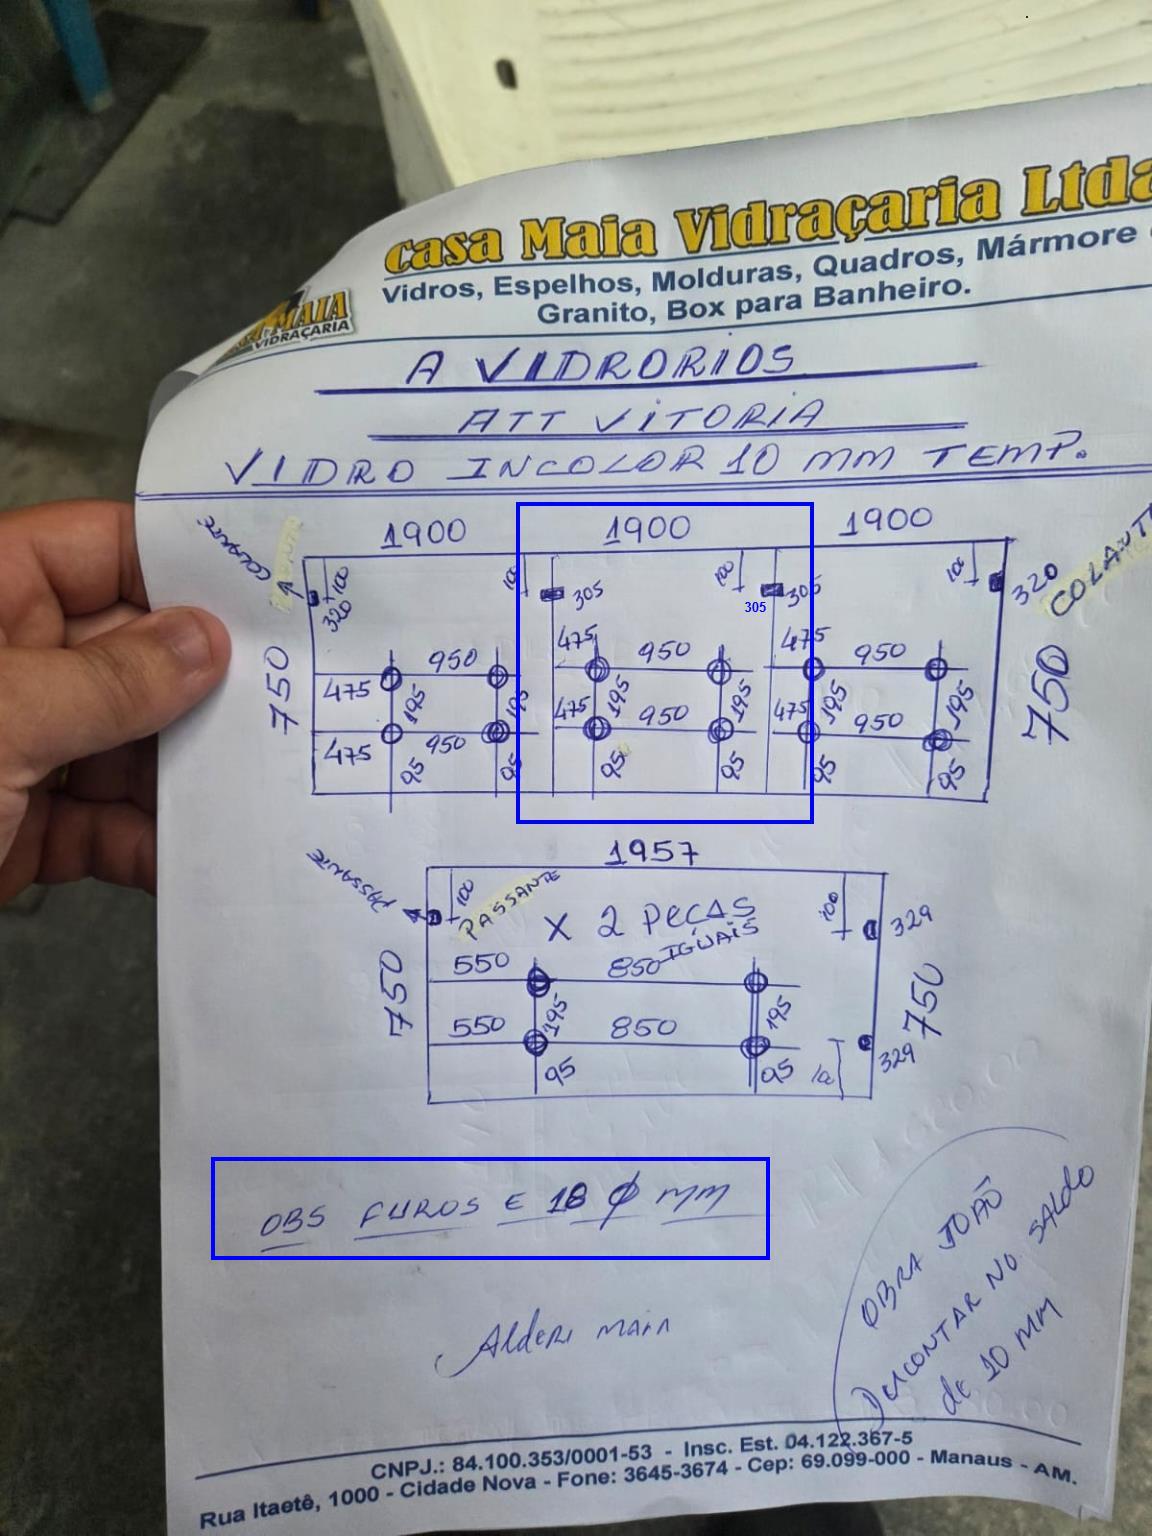 Casa Maia Vidraçaria Ltda
Vidros, Espelhos, Molduras, Quadros, Mármore
Granito, Box para Banheiro.
MAIA
VIDRAÇARIA
A VIDRORIOS
ATT VITORIA
VIDRO INCOLOR 10 MM TEMP.
1900 1900 1900
COLANTE
100 320 100 305 100 305 305 100 320 COLANTE
475 475
950 950 950
475 195 195 195 195 195 195
750 750
475 475
475 950 950 950
95 95 95 95 95 95
1957
PASSANTE
100 PASSANTE 100 329
X 2 PEÇAS
IGUAIS
550 850
750 750
195 195
550 850
329
95 95
OBS FUROS E 18 Ø MM
Alderi Maia
OBRA JOÃO
Descontar no saldo
de 10 mm
CNPJ.: 84.100.353/0001-53 - Insc. Est. 04.122.367-5
Rua Itaetê, 1000 - Cidade Nova - Fone: 3645-3674 - Cep: 69.099-000 - Manaus - AM.